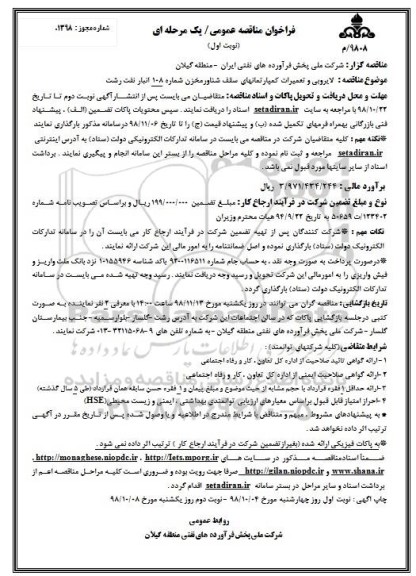 شماره مجوز: ۱۳۹۸.
فراخوان مناقصه عمومی/ یک مرحله ای
(نوبت اول)
۹۸۰۸/م
مناقصه گزار: شرکت ملی پخش فرآورده های نفتی ایران -منطقه گیلان
موضوع مناقصه: لایروبی و تعمیرات کمپارتمانهای سقف شناورمخزن شماره ۱۰۸ انبار نفت رشت
مهلت و محل دریافت و تحویل پاکات و اسناد مناقصه: متقاضیان می بایست پس از انتشارآگهی نوبت دوم تا تاریخ
۹۸/۱۰/۲۲ با مراجعه به سایت setadiran.ir اسناد را دریافت نمایند. سپس محتویات پاکات تضمین (الف)، پیشنهاد
فنی بازرگانی بهمراه فرمهای تکمیل شده (ب) و پیشنهاد قیمت (ج) را تا تاریخ ۹۸/۱۱/۰۶ درسامانه مذکور بارگذاری نمایند
*نکته مهم: کلیه متقاضیان شرکت در مناقصه می بایست در سامانه تدارکات الکترونیکی دولت (ستاد) به آدرس اینترنتی
setadiran.ir مراجعه و ثبت نام نموده و کلیه مراحل مناقصه را از بستر این سامانه انجام و پیگیری نمایند. برداشت
اسناد از سایر سایتها مورد قبول نمی باشد.
برآورد مالی: ۳/۹۷۱/۴۳۴/۲۴۴ ریال
نوع و مبلغ تضمین شرکت در فرآیند ارجاع کار: مبلغ تضمین ۱۹۹/۰۰۰/۰۰۰ ریال و براساس تصویب نامه شماره
۱۲۳۴۰۲/ت ۵۰۶۵۹ به تاریخ ۹۴/۹/۲۲ هیات محترم وزیران
نکات مهم: *شرکت کنندگان پس از تهیه تضمین شرکت در فرآیند ارجاع کار می بایست آن را در سامانه تدارکات
الکترونیک دولت (ستاد) بارگذاری نموده و اصل ضمانتنامه را به امور مالی این شرکت ارائه نمایند.
*درصورت پرداخت به صورت وجه نقد، به حساب جام شماره ۹۲۰۱۱۶۵۱۱ باکد شناسه ۱۰۱۵۵۹۴۶ نزد بانک ملت واریز و
فیش واریزی را به امورمالی این شرکت تحویل و رسید وجه دریافت نمایند. رسید وجه تهیه شده می بایست در سامانه
تدارکات الکترونیک دولت (ستاد) بارگذاری گردد.
تاریخ بازگشایی: مناقصه گران می توانند در روز یکشنبه مورخ ۹۸/۱۱/۱۳ ساعت ۱۴:۰۰ با معرفی ۲ نفر نماینده به صورت
کتبی درجلسه بازگشایی پاکات که در سالن اجتماعات این شرکت به آدرس رشت -گلسار -بلوارسمیه -جنب بیمارستان
گلسار - شرکت ملی پخش فرآورده های نفتی منطقه گیلان -به شماره تلفن های ۹-۳۲۱۱۵۰۶۸-۰۱۳ شرکت نمایند.
شرایط متقاضی (کلیه شرکتهای توانمند):
۱-ارائه گواهی تائید صلاحیت از اداره کل تعاون، کار و رفاه اجتماعی
۲-ارائه گواهی صلاحیت ایمنی از اداره کل تعاون، کار و رفاه اجتماعی
۳-ارائه حداقل ۱ فقره قرارداد با حجم مشابه از حیث موضوع و مبلغ پیمان و ۱ فقره حسن سابقه همان قرارداد (طی ۵ سال گذشته)
۴-احراز امتیاز قابل قبول براساس معیارهای ارزیابی توانمندی بهداشتی، ایمنی و زیست محیطی (HSE)
* به پیشنهادهای مشروط، مبهم و متناقض با شرایط مندرج در اطلاعیه و یا وصول شده پس از تاریخ مقرر در آگهی
ترتیب اثر داده نخواهد شد.
*به پاکات فیزیکی ارائه شده (بغیرازتضمین شرکت در فرآیند ارجاع کار) ترتیب اثر داده نمی شود.
ضمناً اسنادمناقصه مذکور در سایت های http://iets.mporg.ir ، http://monaghese.niopdc.ir ،
www.shana.ir و http://gilan.niopdc.ir صرفا جهت رویت بوده و ضروری است کلیه مراحل مناقصه اعم از
برداشت اسناد و سایر مراحل در بستر سامانه setadiran.ir اقدام گردد.
چاپ آگهی: نوبت اول روز چهارشنبه مورخ ۹۸/۱۰/۰۴ -نوبت دوم روز یکشنبه مورخ ۹۸/۱۰/۰۸
روابط عمومی
شرکت ملی پخش فرآورده های نفتی منطقه گیلان